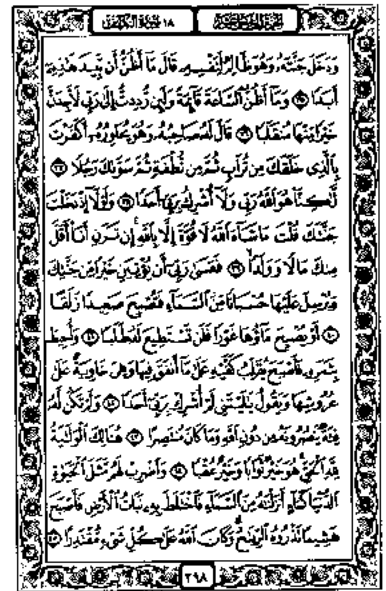 الجزء الخامس عشر
١٨ سورة الكهف
وَدَخَلَ جَنَّتَهُۥ وَهُوَ ظَالِمٌ لِّنَفْسِهِۦ قَالَ مَآ أَظُنُّ أَن تَبِيدَ هَٰذِهِۦٓ
أَبَدًا ٣٥ وَمَآ أَظُنُّ ٱلسَّاعَةَ قَآئِمَةً وَلَئِن رُّدِدتُّ إِلَىٰ رَبِّى لَأَجِدَنَّ
خَيْرًا مِّنْهَا مُنقَلَبًا ٣٦ قَالَ لَهُۥ صَاحِبُهُۥ وَهُوَ يُحَاوِرُهُۥٓ أَكَفَرْتَ
بِٱلَّذِى خَلَقَكَ مِن تُرَابٍ ثُمَّ مِن نُّطْفَةٍ ثُمَّ سَوَّىٰكَ رَجُلًا ٣٧
لَّٰكِنَّا۠ هُوَ ٱللَّهُ رَبِّى وَلَآ أُشْرِكُ بِرَبِّىٓ أَحَدًا ٣٨ وَلَوْلَآ إِذْ دَخَلْتَ
جَنَّتَكَ قُلْتَ مَا شَآءَ ٱللَّهُ لَا قُوَّةَ إِلَّا بِٱللَّهِ إِن تَرَنِ أَنَا۠ أَقَلَّ
مِنكَ مَالًا وَوَلَدًا ٣٩ فَعَسَىٰ رَبِّىٓ أَن يُؤْتِيَنِ خَيْرًا مِّن جَنَّتِكَ
وَيُرْسِلَ عَلَيْهَا حُسْبَانًا مِّنَ ٱلسَّمَآءِ فَتُصْبِحَ صَعِيدًا زَلَقًا
٤٠ أَوْ يُصْبِحَ مَآؤُهَا غَوْرًا فَلَن تَسْتَطِيعَ لَهُۥ طَلَبًا ٤١ وَأُحِيطَ
بِثَمَرِهِۦ فَأَصْبَحَ يُقَلِّبُ كَفَّيْهِ عَلَىٰ مَآ أَنفَقَ فِيهَا وَهِىَ خَاوِيَةٌ عَلَىٰ
عُرُوشِهَا وَيَقُولُ يَٰلَيْتَنِى لَمْ أُشْرِكْ بِرَبِّىٓ أَحَدًا ٤٢ وَلَمْ تَكُن لَّهُۥ
فِئَةٌ يَنصُرُونَهُۥ مِن دُونِ ٱللَّهِ وَمَا كَانَ مُنتَصِرًا ٤٣ هُنَالِكَ ٱلْوَلَٰيَةُ
لِلَّهِ ٱلْحَقِّ هُوَ خَيْرٌ ثَوَابًا وَخَيْرٌ عُقْبًا ٤٤ وَٱضْرِبْ لَهُم مَّثَلَ ٱلْحَيَوٰةِ
ٱلدُّنْيَا كَمَآءٍ أَنزَلْنَٰهُ مِنَ ٱلسَّمَآءِ فَٱخْتَلَطَ بِهِۦ نَبَاتُ ٱلْأَرْضِ فَأَصْبَحَ
هَشِيمًا تَذْرُوهُ ٱلرِّيَٰحُ وَكَانَ ٱللَّهُ عَلَىٰ كُلِّ شَىْءٍ مُّقْتَدِرًا ٤٥
٢٩٨